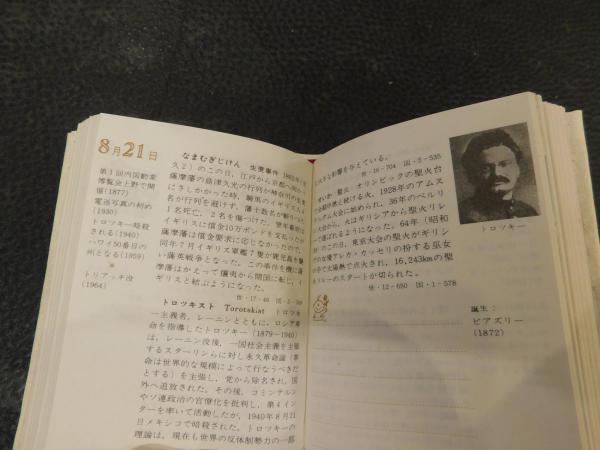 8月21日
第1回内国勧業
博覧会上野で開
催(1877)
電送写真の初め
(1930)
トロツキー暗殺
される(1940)
ハワイ50番目の
州となる(1959)
*
トリアッチ没
(1964)
なまむぎじけん 生麦事件 1862年(文
久2)のこの日、江戸から京都へ向かう
薩摩藩の島津久光の行列が神奈川の生麦
にさしかかった時、騎馬のイギリス人4
名が行列を避けず、藩士数名が斬りつけ
1名死亡、2名を傷つけた。翌年幕府は
イギリスに償金10万ポンドを支払ったが
薩摩藩は償金要求に応じなかったので、
同年7月イギリス軍艦7隻が鹿児島を襲
い薩英戦争となった。この事件を機に薩
摩藩はかえって攘夷から開国に転じ、イ
ギリスと結ぶようになった。
世・17-46 国・5-388
トロツキスト Torotskist トロツキ
ー主義者。レーニンとともに、ロシア革
命を指導したトロツキー(1879〜1940)
は、レーニン没後、一国社会主義を主張
するスターリンらに対し永久革命論(革
命は世界的な規模によって行なうべきだ
とする)を主張し、党から除名され、国
外へ追放された。その後、コミンテルン
やソ連政治の官僚化を批判し、第4イン
ターを率いて活動したが、1940年8月21
日メキシコで暗殺された。トロツキーの
理論は、現在も世界の反体制勢力の一部
に大きな影響を与えている。
世・16-704 国・5-535
せいか 聖火 オリンピックの聖火台
で会期中燃え続ける火。1928年のアムス
テルダム大会に始められ、36年のベルリ
ン大会から、火はギリシアから聖火リレ
ーで運ばれるようになった。64年(昭和
39)のこの日、東京大会の聖火がギリシ
アでの女優アレカ・カッセリの扮する巫女
の手で太陽熱で点火され、16,243kmの聖
火リレーのスタートが切られた。
世・12-650 国・1-578
トロツキー
誕生:
ビアズリー
(1872)